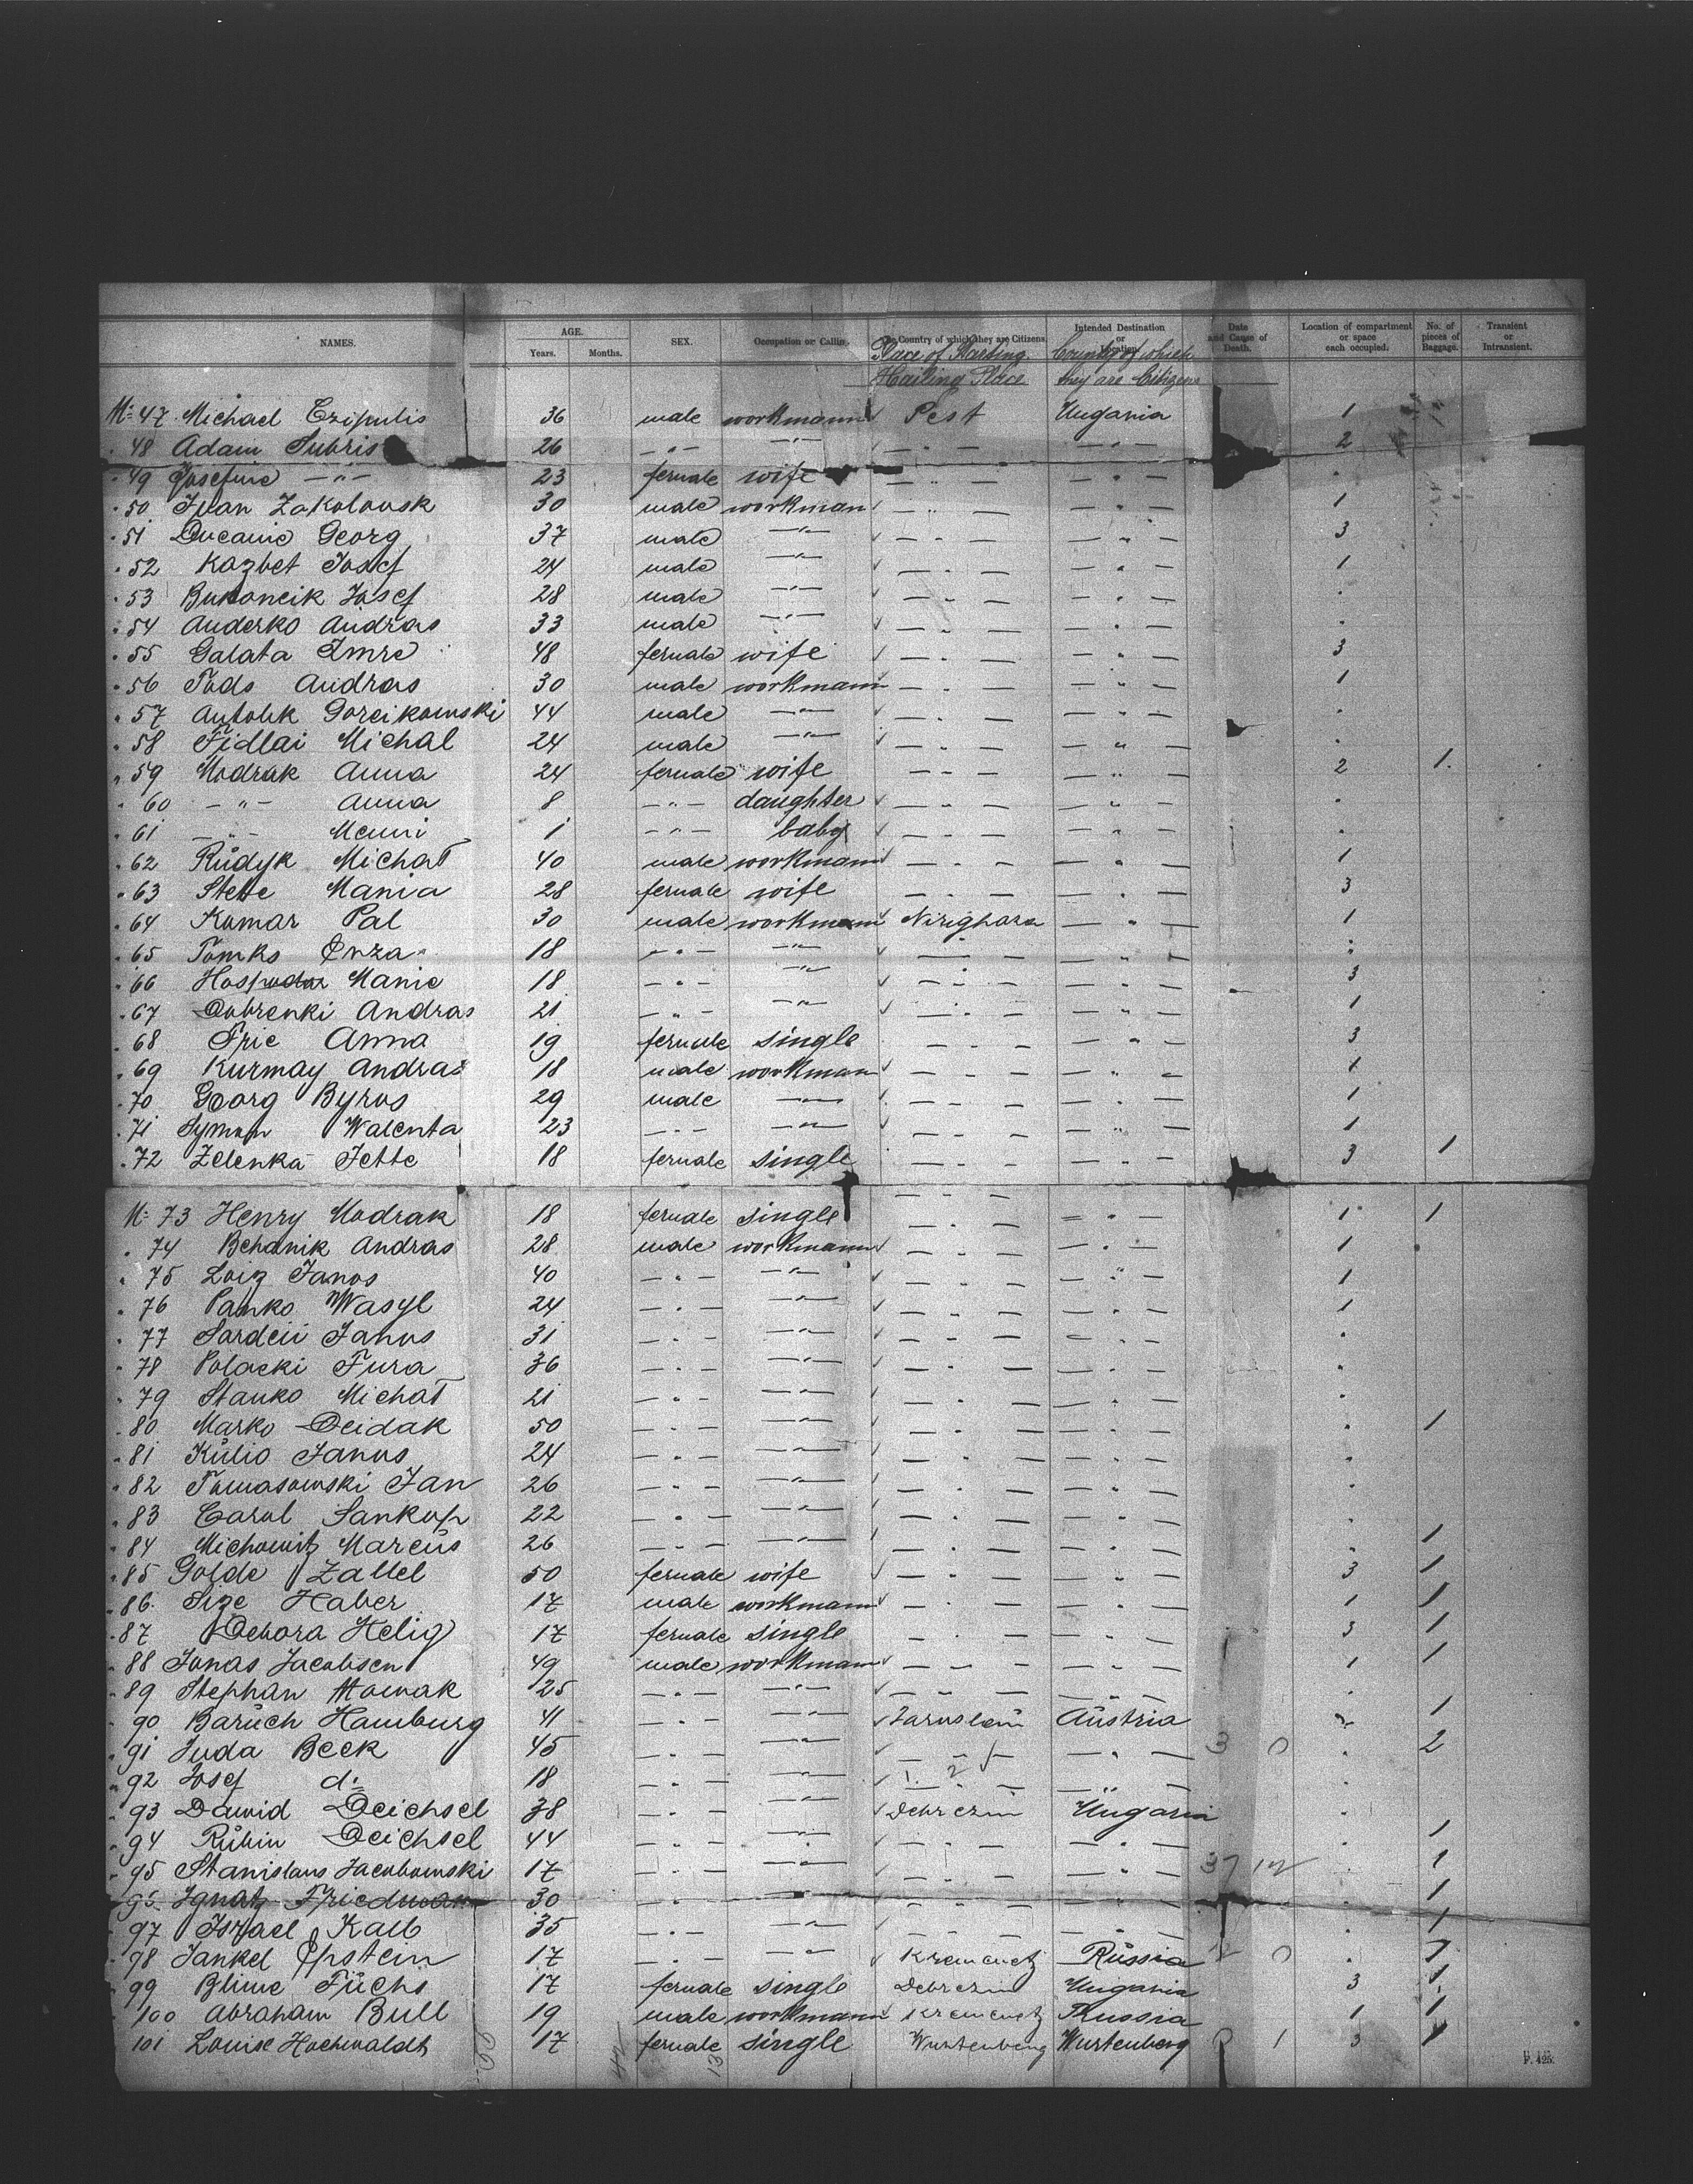 NAMES. AGE. Years. Months. SEX. Occupation or Calling. The Country of which they are Citizens. Intended Destination or Location. Date and Cause of Death. Location of compartment or space each occupied. No. of pieces of Baggage. Transient or Intransient.
Place of Starting County of which
Hailing Place they are Citizens
№ 47 Michael Czipulis 36 male workmann Pest Ungaria 1
48 Adam Subris 26 -"- -"- -"- -"- 2
49 Josefine -"- 23 female wife -"- -"- "
50 Ivan Zakolousk 30 male workman -"- -"- 1
51 Ducanic Georg 37 male -"- -"- -"- 3
52 Kazbet Josef 24 male -"- -"- -"- 1
53 Bukoncik Josef 28 male -"- -"- -"- "
54 Anderko Andras 33 male -"- -"- -"- "
55 Galata Imre 48 female wife -"- -"- 3
56 Tods Andras 30 male workmann -"- -"- 1
57 Antolik Goreikowski 44 male -"- -"- -"- "
58 Fidlai Michal 24 male -"- -"- -"- "
59 Modrak Anna 24 female wife -"- -"- 2 1.
60 -"- Anna 8 -"- daughter -"- -"- "
61 -"- Menni 1 -"- baby -"- -"- "
62 Rudyk Michal 40 male workmann -"- -"- 1
63 Stette Mania 28 female wife -"- -"- 3
64 Komar Pal 30 male workmann Nirighara -"- 1
65 Tomko Onza 18 -"- -"- -"- -"- "
66 Hospodar Manie 18 -"- -"- -"- -"- 3
67 Dobrenki Andras 21 -"- -"- -"- -"- 1
68 Fric Anna 19 female single -"- -"- 3
69 Kurmay Andras 18 male workman -"- -"- 1
70 Georg Byros 29 male -"- -"- -"- 1
71 Symon Walenta 23 -"- -"- -"- -"- 1
72 Zelenka Jette 18 female single -"- -"- 3 1
№ 73 Henry Modrak 18 female single -"- -"- 1 1
74 Behanik Andras 28 male workmann -"- -"- 1
75 Loiz Janos 40 -"- -"- -"- -"- 1
76 Panko Wasyl 24 -"- -"- -"- -"- 1
77 Sardeii Janos 31 -"- -"- -"- -"- "
78 Polacki Fura 36 -"- -"- -"- -"- "
79 Stanko Michal 21 -"- -"- -"- -"- "
80 Marko Deidak 50 -"- -"- -"- -"- " 1
81 Kulio Janos 24 -"- -"- -"- -"- "
82 Tomasowski Jan 26 -"- -"- -"- -"- "
83 Carol Sankop 22 -"- -"- -"- -"- "
84 Michowitz Marcus 26 -"- -"- -"- -"- " 1
85 Golde Zallel 50 female wife -"- -"- 3 1
86 Size Haber 17 male workmann -"- -"- 1 1
87 Debora Helig 17 female single -"- -"- 3 1
88 Jonas Jacobsen 49 male workmann -"- -"- 1 1
89 Stephan Nowak 25 -"- -"- -"- -"- "
90 Baruch Hamburg 41 -"- -"- Jaruslau Austria 1
91 Juda Beck 45 -"- -"- -"- -"- 3 0 " 2
92 Josef do 18 -"- -"- -"- -"- "
93 Dawid Deichsel 38 -"- -"- Debrezin Ungaria "
94 Rubin Deichsel 44 -"- -"- -"- -"- " 1
95 Stanislaus Jacobowski 17 -"- -"- -"- -"- 37 12 " 1
95 Ignatz Friedman 30 -"- -"- -"- -"- " 1
97 Israel Kalb 35 -"- -"- -"- -"- " 1
98 Jankel Epstein 17 -"- -"- Kremenetz Russia 12 0 " 1
99 Blime Fuchs 17 female single Debrezin Ungaria 3 1
100 Abraham Bull 19 male workmann Kremenetz Russia 1 1
101 Louise Hochwaldt 17 female single Wurtenberg Wurtenberg 1 3 1
F. 425.